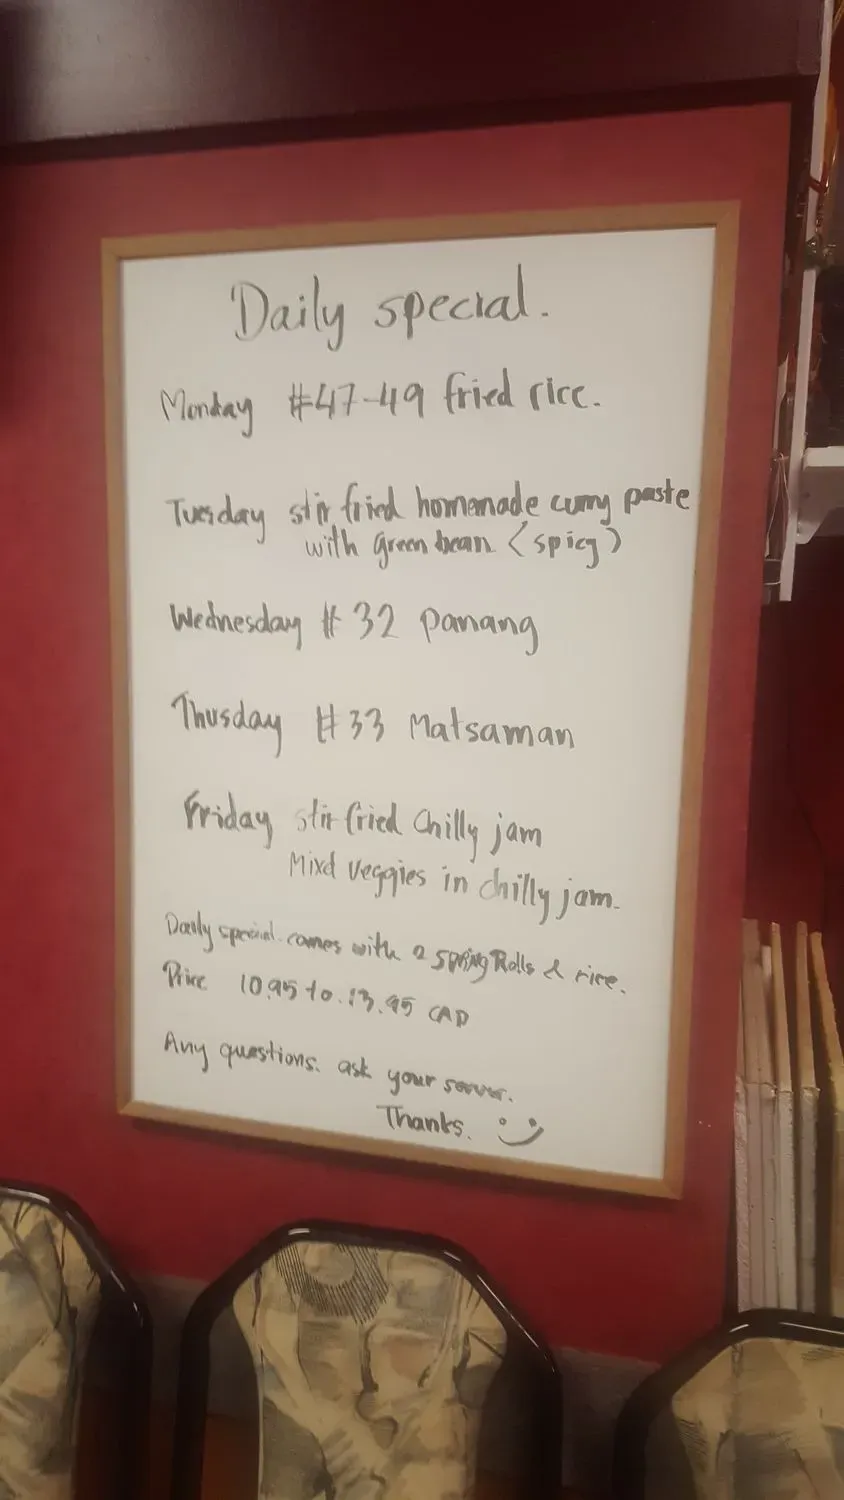 Daily special.
Monday #47-49 fried rice.
Tuesday stir fried homemade curry paste
with green bean (spicy)
Wednesday #32 panang
Thusday #33 Matsaman
Friday stir fried Chilly jam
Mixd veggies in chilly jam.
Daily special comes with 2 spring Rolls & rice.
Price 10.95 to 13.95 CAD
Any questions. ask your server.
Thanks.